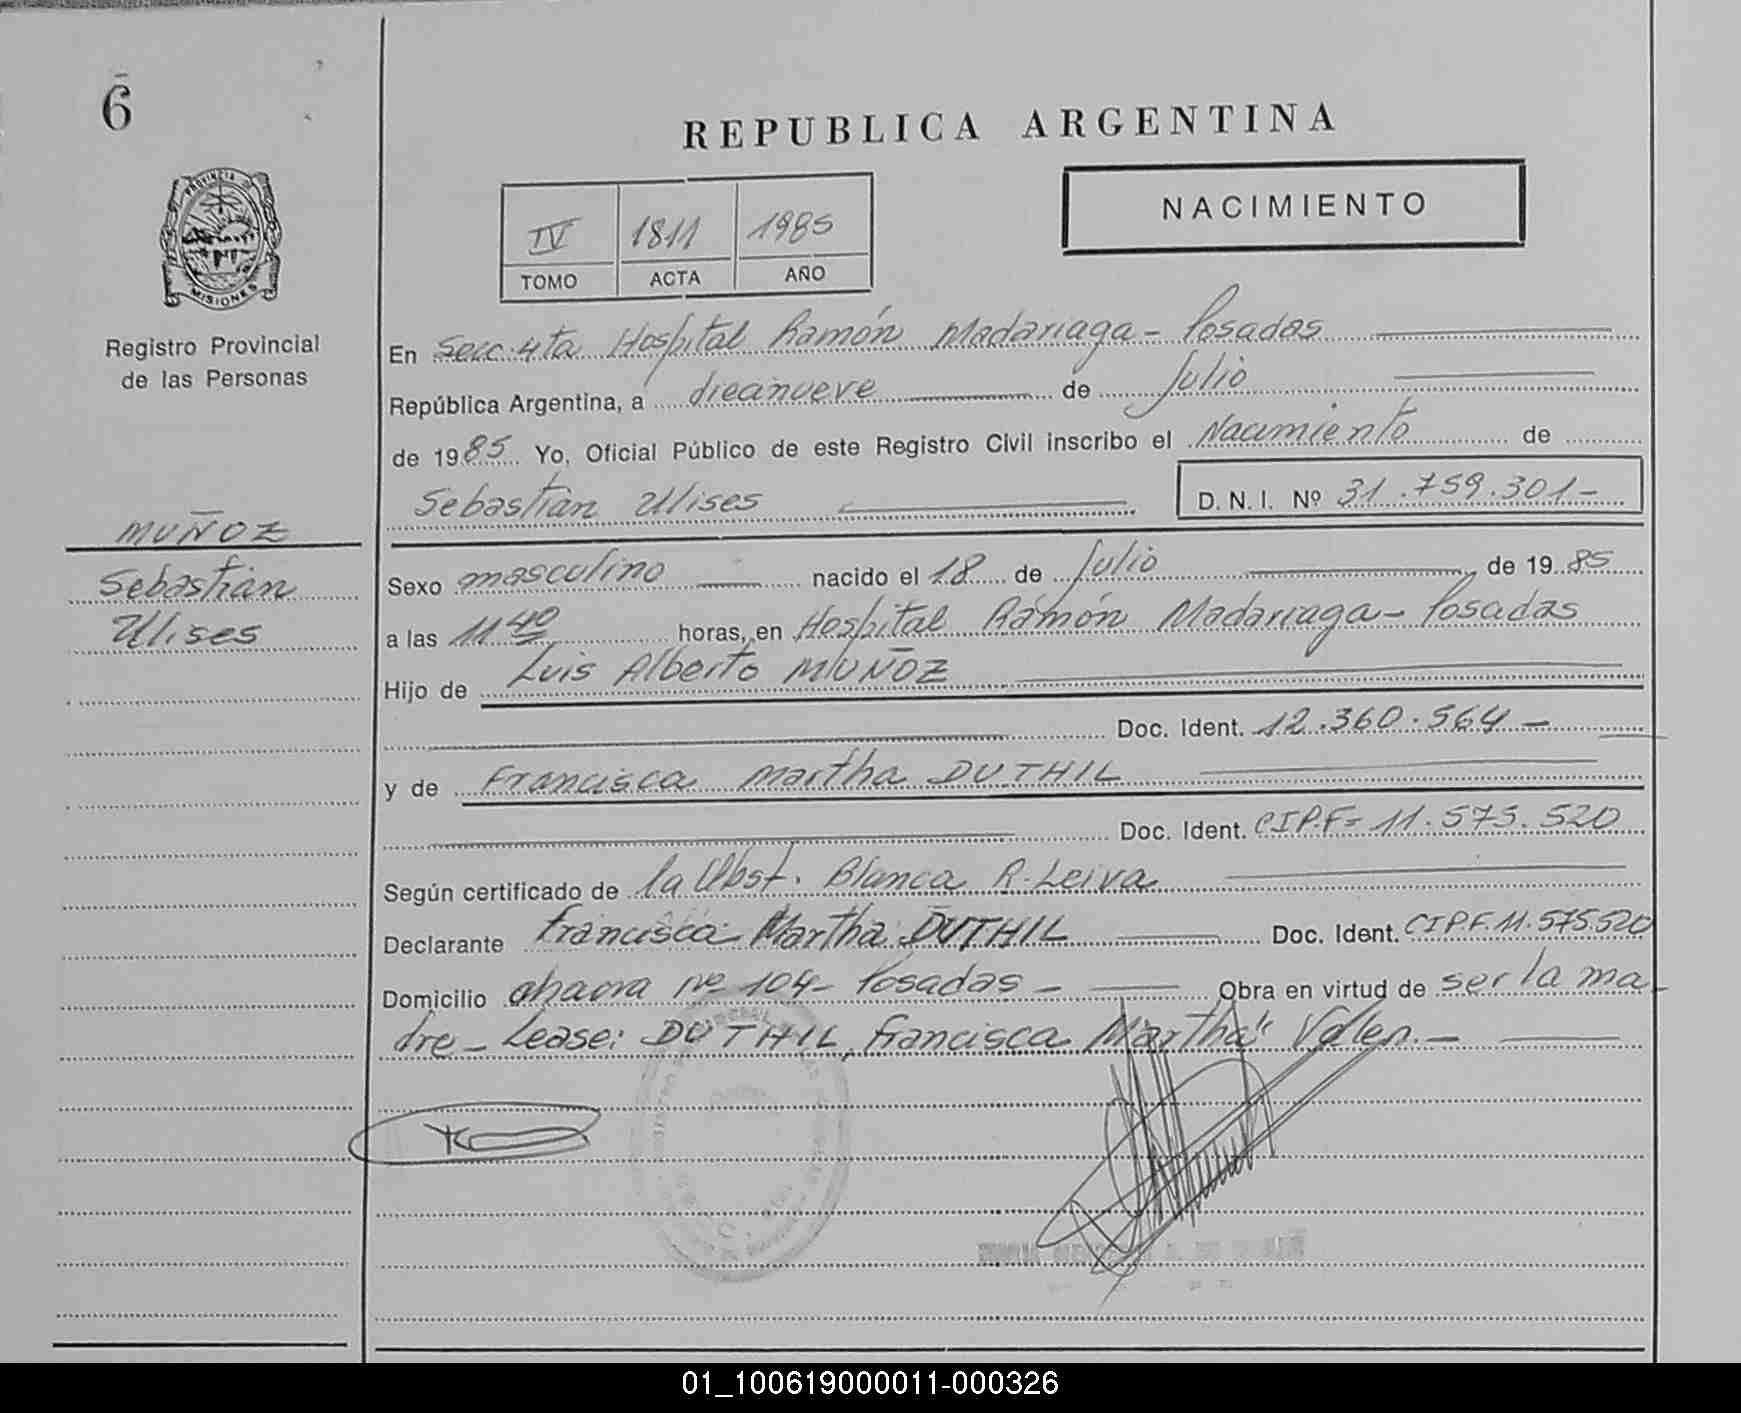 6
REPUBLICA ARGENTINA
NACIMIENTO
PROVINCIA DE
MISIONES
IV 1811 1985
TOMO ACTA AÑO
Registro Provincial
de las Personas
En Secc. 4ta Hospital Ramón Madariaga - Posadas
República Argentina, a diecinueve de Julio
de 1985 Yo, Oficial Público de este Registro Civil inscribo el Nacimiento de
Sebastian Ulises D.N.I. Nº 31.759.301-
MUÑOZ
Sebastian
Ulises
Sexo masculino nacido el 18 de Julio de 1985
a las 11 40 horas, en Hospital Ramón Madariaga - Posadas
Hijo de Luis Alberto MUÑOZ
Doc. Ident. 12.360.564-
y de Francisca Martha DUTHIL
Doc. Ident. CIP.F= 11.575.520
Según certificado de la Obst. Blanca R. Leiva
Declarante Francisca Martha DUTHIL Doc. Ident. CIP.F. 11.575.520
Domicilio chacra nº 104- Posadas - Obra en virtud de ser la ma
dre - Lease: DUTHIL, Francisca Martha" Valen.-
01_100619000011-000326